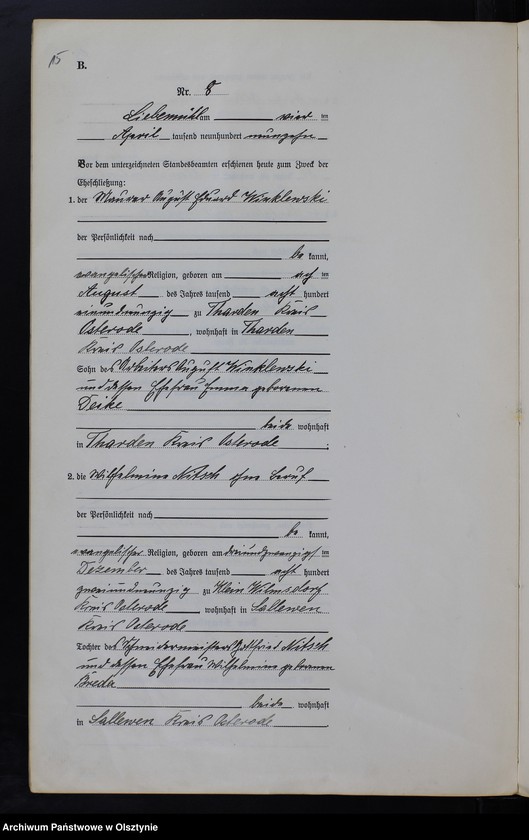 15
B.
Nr. 8
Liebemühl am vierten
April tausend neunhundert neunzehn
Vor dem unterzeichneten Standesbeamten erschienen heute zum Zweck der
Eheschließung:
1. der Maurer August Eduard Winklewski
der Persönlichkeit nach
be kannt,
evangelischer Religion, geboren am ach ten
August des Jahres tausend acht hundert
einundneunzig zu Tharden Kreis
Osterode, wohnhaft in Tharden
Kreis Osterode
Sohn des Arbeiters August Winklewski
und dessen Ehefrau Emma geborenen
Teike
beide wohnhaft
in Tharden Kreis Osterode ;
2. die Wilhelmine Nitsch ohne Beruf
der Persönlichkeit nach
be kannt,
evangelischer Religion, geboren am dreiundzwanzigsten
Dezember des Jahres tausend acht hundert
zweiundneunzig zu Klein Wilmsdorf
Kreis Osterode wohnhaft in Sallewen
Kreis Osterode
Tochter des Schneidermeisters Gottfried Nitsch
und dessen Ehefrau Wilhelmine geborenen
Breda
beide wohnhaft
in Sallewen Kreis Osterode
Archiwum Państwowe w Olsztynie